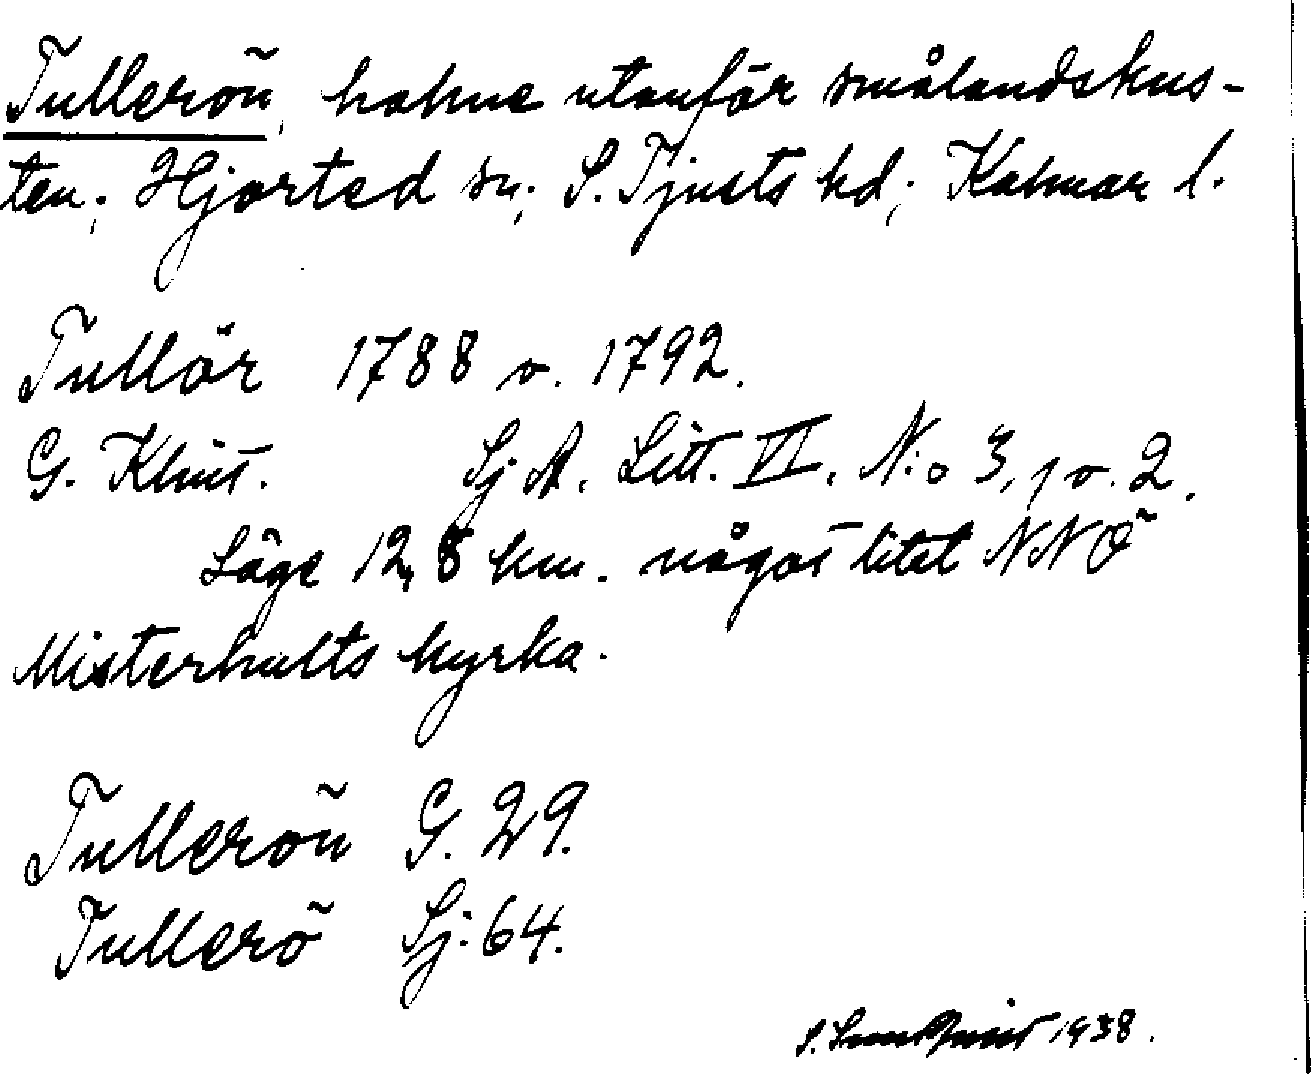 Tullerön, holme utanför smålandskus-
ten; Hjorted sn; S. Tjusts hd; Kalmar l.
Tullör 1788 o. 1792.
G. Klint. Sj A. Litt. VI. N:o 3, 1 o. 2.
Läge 12,8 km. något litet NNÖ
Misterhults kyrka.
Tullerön G. 29.
Tullerö Sj. 64.
S. 1938.